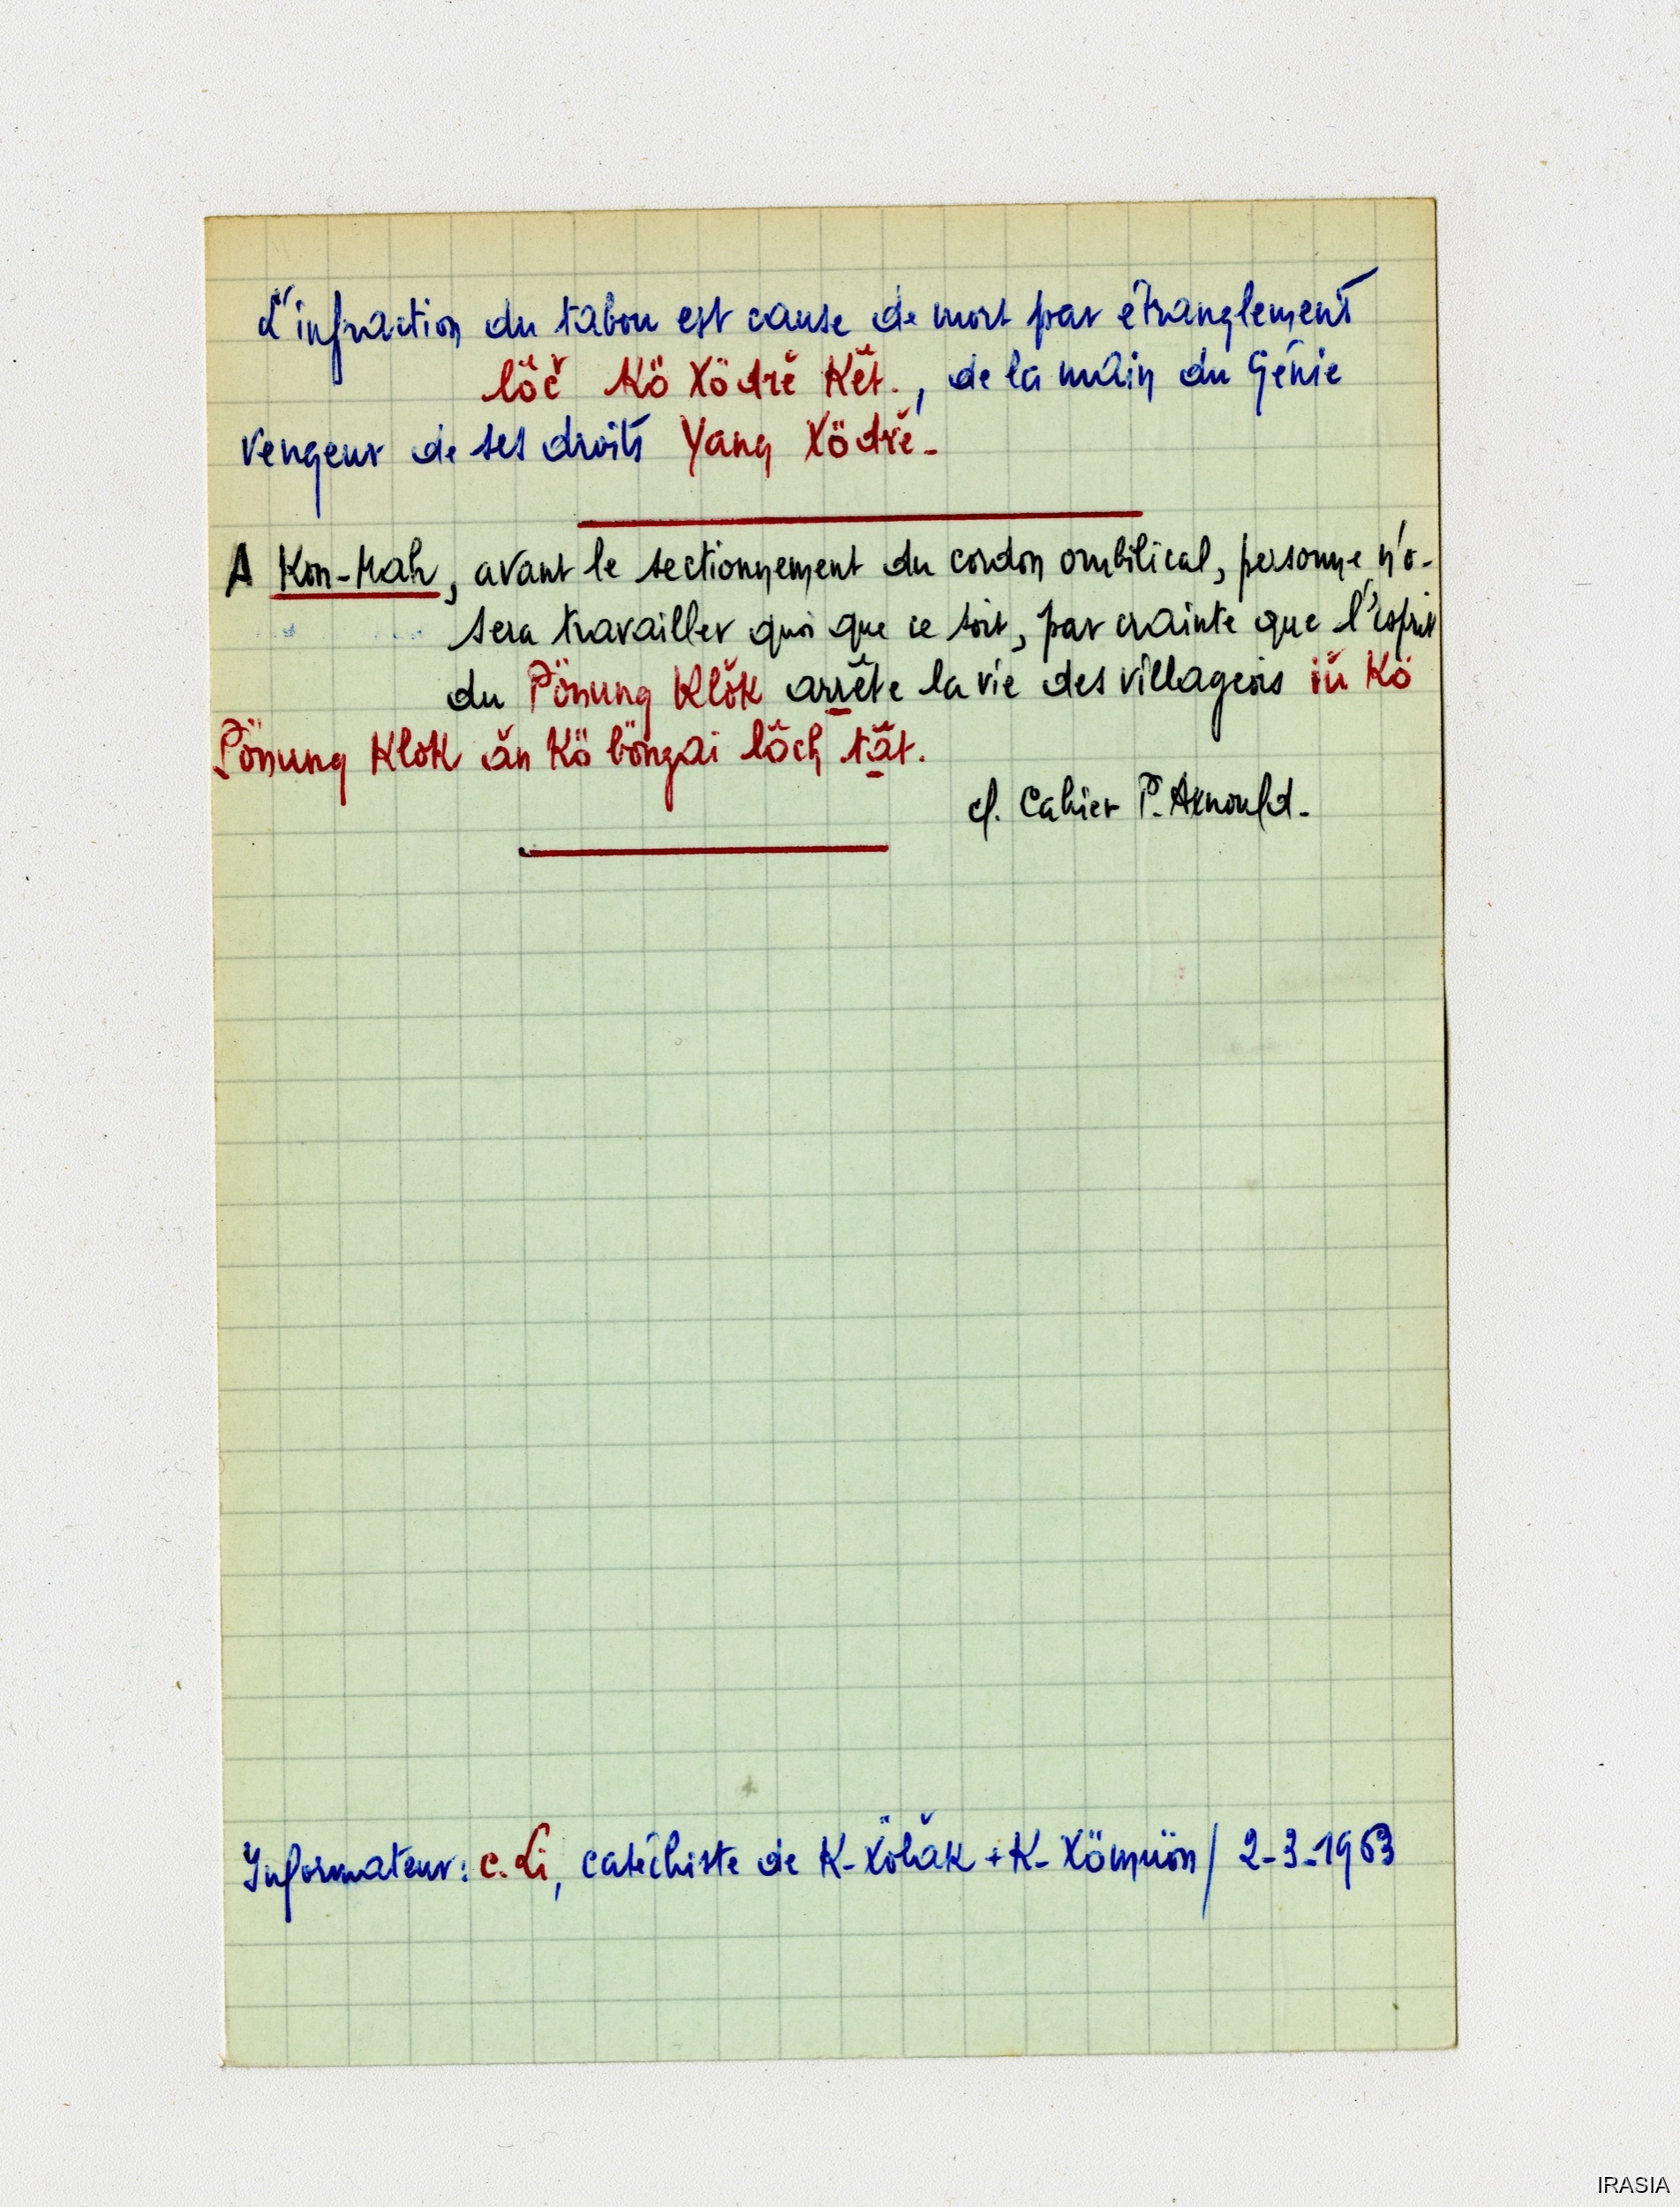 L'infraction du tabou est cause de mort par étranglement
lôč kö Xödrĕ Kĕt., de la main du Génie
vengeur de ses droits Yang Xödrĕ.
A Kon-Mah, avant le sectionnement du cordon ombilical, personne n'o-
sera travailler quoi que ce soit, par crainte que l'esprit
du Pönung Klŏk arrête la vie des villageois iŭ Kö
Pönung Klok ăn Kö böngai lŏch tăt.
cf. Cahier P. Arnould.
Informateur: c. Li, catéchiste de K-Xölăk + K- Xömuön / 2-3-1963
IRASIA